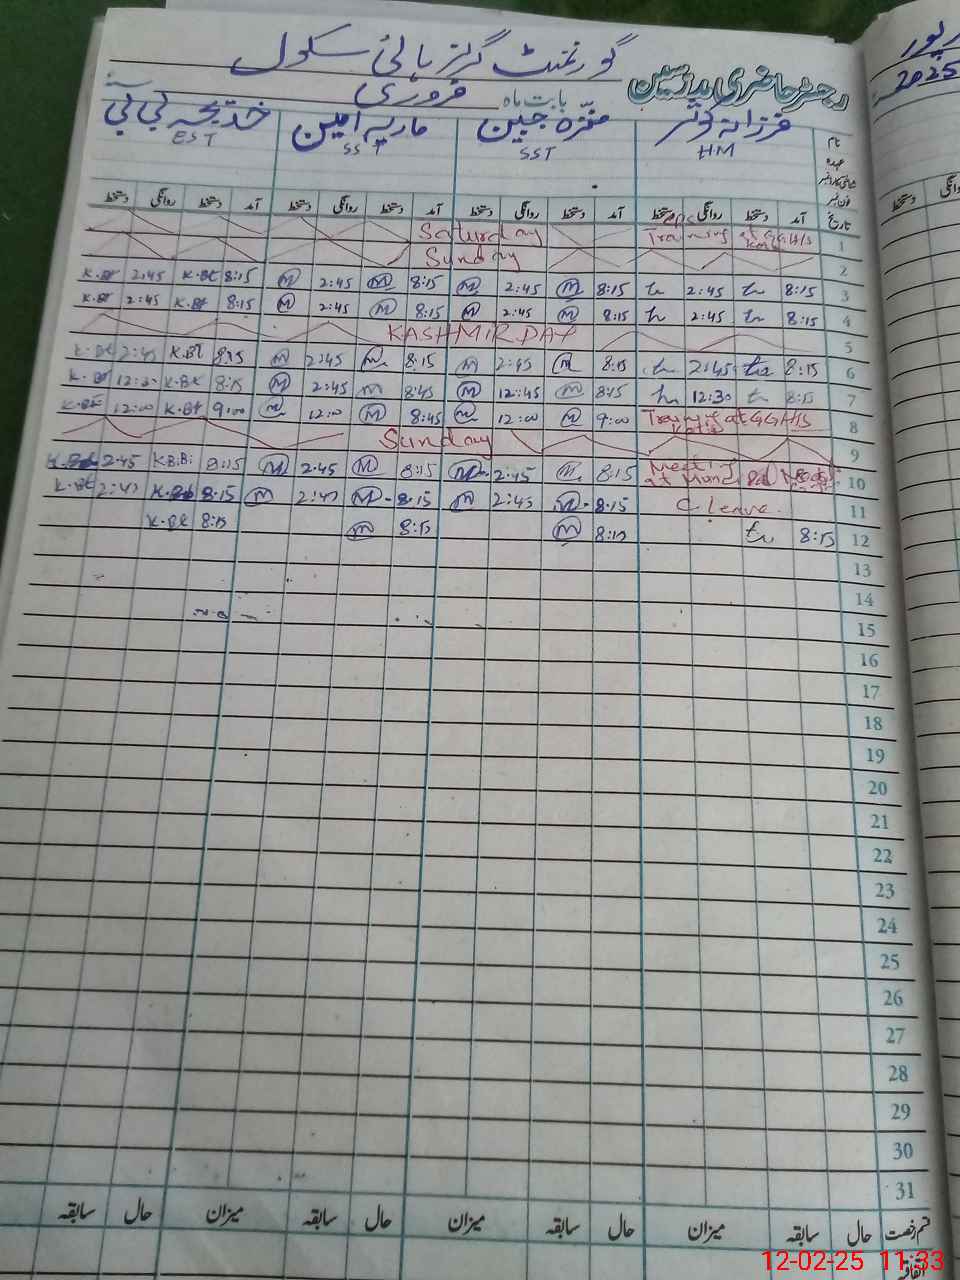 گورنمنٹ گرلز ہائی سکول
رجسٹر حاضری مدرسین بابت ماہ فروری
پور
2025
نام فرزانہ کوثر منزہ جبین ماریہ امین خدیجہ بی بی
عہدہ HM SST SST EST
تاریخ آمد دستخط روانگی دستخط آمد دستخط روانگی دستخط آمد دستخط روانگی دستخط آمد دستخط روانگی دستخط
1 Training at GGHS Saturday
2 Sunday
3 8:15 2:45 8:15 M 2:45 M 8:15 M 2:45 M 8:15 K.Bt 2:45 K.Bt
4 8:15 2:45 8:15 M 2:45 M 8:15 M 2:45 M 8:15 K.Bt 2:45 K.Bt
5 KASHMIR DAY
6 8:15 2:45 8:15 M 2:45 M 8:15 M 2:45 M 8:15 K.Bt 2:45 K.Bt
7 8:15 12:30 8:15 M 12:45 M 8:45 M 2:45 M 8:15 K.Bt 12:30 K.Bt
8 Training at GGHS 9:00 M 12:00 M 8:45 M 12:00 M 9:00 K.Bt 12:00 K.Bt
9 Sunday
10 Meeting at 8:15 M 2:45 M 8:15 M 2:45 M 8:15 K.B: 2:45
11 C leave 8:15 M 2:45 M 8:15 M 2:45 M 8:15 2:45 K.Bt
12 8:15 8:15 M 8:15 M 8:15 K.Bt
13
14
15
16
17
18
19
20
21
22
23
24
25
26
27
28
29
30
31
قسم رخصت حال سابقہ میزان حال سابقہ میزان حال سابقہ میزان حال سابقہ
اتفاقیہ
12-02-25 11:33